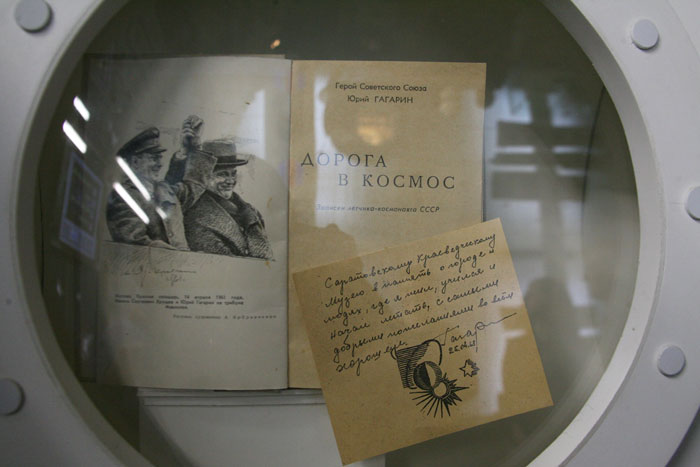 Герой Советского Союза
Юрий ГАГАРИН
ДОРОГА
В КОСМОС
Записки летчика-космонавта СССР
Москва, Красная площадь, 14 апреля 1961 года.
Никита Сергеевич Хрущев и Юрий Гагарин на трибуне
Мавзолея
Рисунок художника
Саратовскому краеведческому
музею в память о городе и
людях, где я жил, учился и
начал летать, с самыми
добрыми пожеланиями во всём
хорошем.
Гагарин